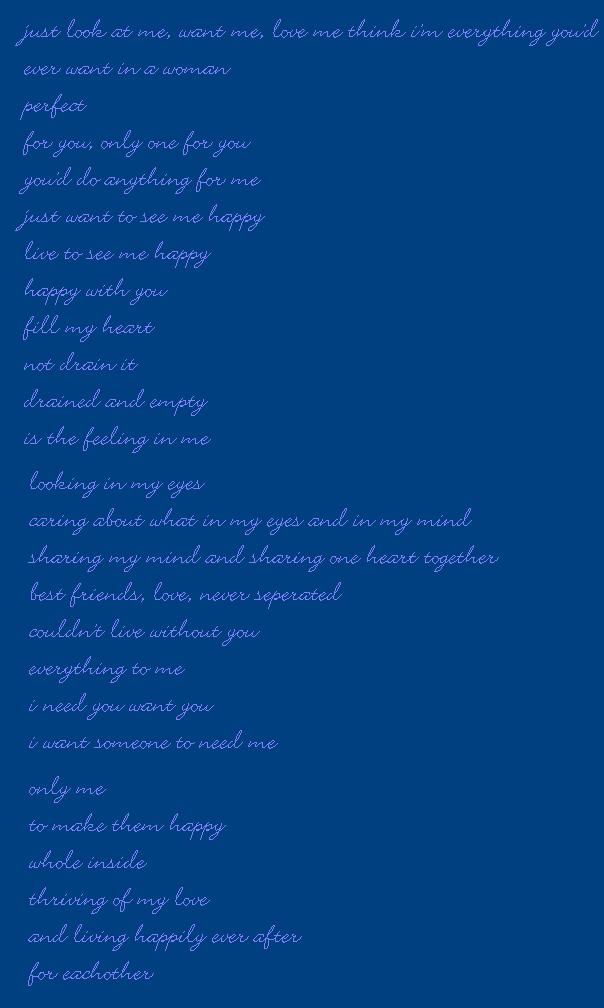 just look at me, want me, love me think i'm everything you'd
ever want in a woman
perfect
for you, only one for you
you'd do anything for me
just want to see me happy
live to see me happy
happy with you
fill my heart
not drain it
drained and empty
is the feeling in me
looking in my eyes
caring about what in my eyes and in my mind
sharing my mind and sharing one heart together
best friends, love, never seperated
couldn't live without you
everything to me
i need you want you
i want someone to need me
only me
to make them happy
whole inside
thriving of my love
and living happily ever after
for eachother